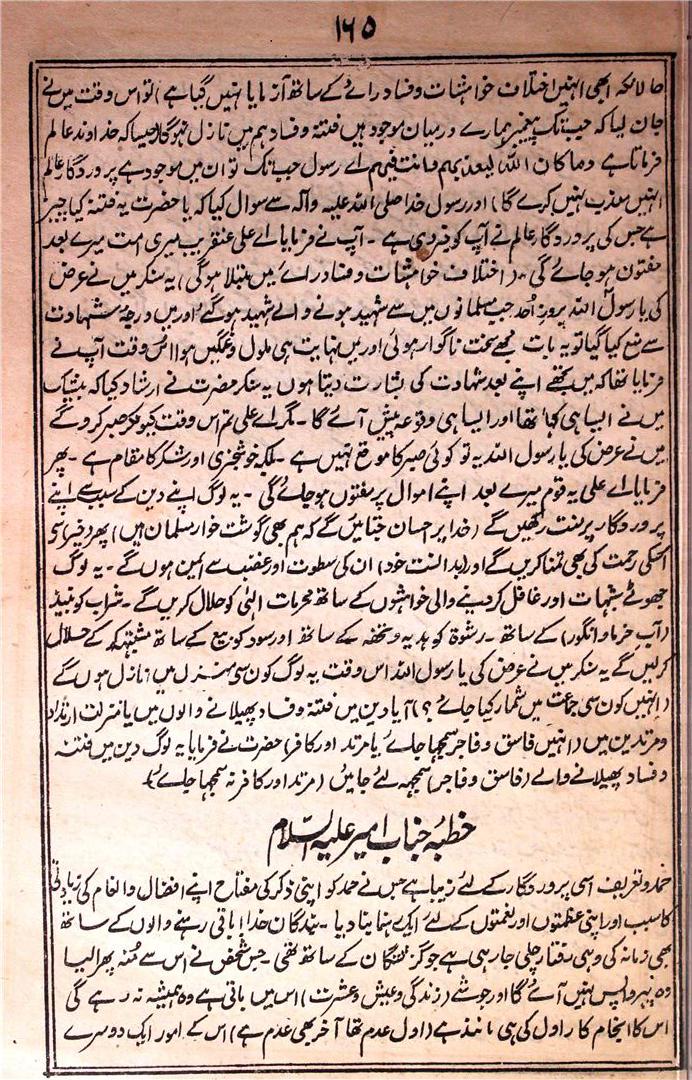 ۱۶۵
حالانکہ ابھی انہیں اختلاف خواہشات وفساد رائے کے ساتھ آزمایا نہیں گیا ہے) تو اس وقت میں نے
جان لیا کہ جب تک پیغمبر ہمارے درمیان موجود ہیں فتنہ وفساد ہم میں نازل نہوگا (جیسا کہ خداوند عالم
فرماتا ہے وماکان اللہ لیعذبہم وانت فیہم اے رسول جب تک تو ان میں موجود ہے پروردگار عالم
انہیں معذب نہیں کرے گا) اور رسول خدا صلی اللہ علیہ وآلہ سے سوال کیا کہ یا حضرت یہ فتنہ کیا چیز
ہے جس کی پروردگار عالم نے آپ کو خبر دی ہے ۔ آپ نے فرمایا اے علی عنقریب میری امت میرے بعد
مفتون ہو جائے گی ۔ (اختلاف خواہشات وفساد رائے میں مبتلا ہوگی) یہ سنکر میں نے عرض
کی یا رسول اللہ بروز اُحد جب مسلمانوں میں سے شہید ہونے والے شہید ہوگئے اور میں درجۂ شہادت
سے منع کیا گیا تو یہ بات مجھے سخت ناگوار ہوئی اور میں نہایت ہی ملول وغمگین ہوا اس وقت آپ نے
فرمایا تھا کہ میں تجھے اپنے بعد شہادت کی بشارت دیتا ہوں یہ سنکر حضرت نے ارشاد کیا کہ بیشک
میں نے ایسا ہی کہا تھا اور ایسا ہی وقوعہ پیش آئے گا ۔ مگر اے علی تم اس وقت کیونکر صبر کروگے
میں نے عرض کی یا رسول اللہ یہ تو کوئی صبر کا موقع نہیں ہے ۔ بلکہ خوشخبری اور شکر کا مقام ہے ۔ پھر
فرمایا اے علی یہ قوم میرے بعد اپنے اموال پر مفتوں ہو جائے گی ۔ یہ لوگ اپنے دین کے سبب سے اپنے
پروردگار پر منت رکھیں گے (خدا پر احسان جتائیں گے کہ ہم بھی گوشت خوار مسلمان ہیں) پھر
اسکی رحمت کی بھی تمنا کریں گے اور ان کی سطوت اور غضب سے امین ہوں گے ۔ یہ لوگ
جھوٹے شبہات اور غافل کردینے والی خواہشوں کے ساتھ محرمات الٰہی کو حلال کریں گے ۔ شراب کو نبیذ
(آب خرما وانگور) کے ساتھ ۔ رشوۃ کو ہدیہ وتحفہ کے ساتھ اور سود کو بیع کے ساتھ مشتبہ کرکے حلال
کرلیں گے یہ سنکر میں نے عرض کی یا رسول اللہ اس وقت یہ لوگ کون سی منزل میں نازل ہوں گے
(انہیں کون سی جماعت میں شمار کیا جائے ؟) آیا دین میں فتنہ وفساد پھیلانے والوں میں یا منزلت ارتداد
ومرتدین میں (انہیں فاسق وفاجر سمجھا جائے یا مرتد اور کافر) حضرت نے فرمایا یہ لوگ دین میں فتنہ
وفساد پھیلانے والے (فاسق وفاجر) سمجھ لئے جائیں (مرتد اور کافر نہ سمجھا جائے)۔
خطبۂ جناب امیر علیہ السلام
حمد وتعریف اسی پروردگار کے لئے زیبا ہے جس نے حمد کو اپنی ذکر کی مفتاح اپنے افضال وانعام کی زیادتی
کا سبب اور اپنی عظمتوں اور نعمتوں کے لئے ایک رہنما بنا دیا ۔ بندگان خدا! باقی رہنے والوں کے ساتھ
بھی زمانہ کی وہی رفتار چلی جارہی ہے جو گزشتگان کے ساتھ تھی ۔ جس شخص نے اس سے منہ پھرا لیا
وہ پھر واپس نہیں آئے گا اور جو شے (زندگی وعیش وعشرت) اس میں باقی ہے وہ ہمیشہ نہ رہے گی
اس کا انجام کار اول کی ہی مانند ہے (اول عدم تھا آخر بھی عدم ہے) اس کے امور ایک دوسرے